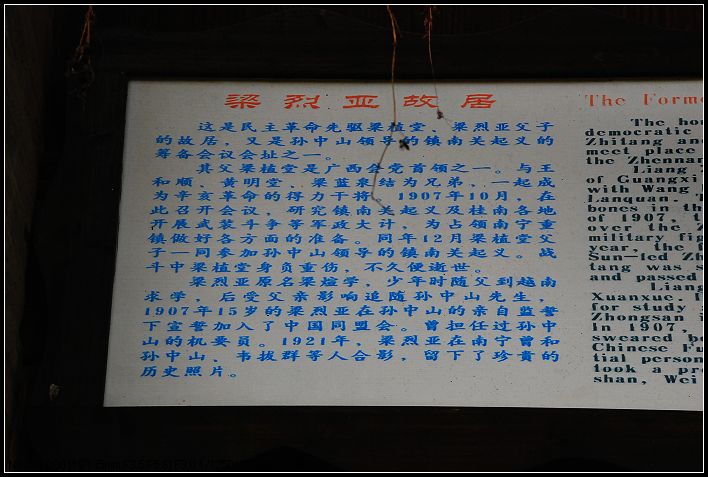 梁烈亚故居
这是民主革命先驱梁植堂、梁烈亚父子
的故居,又是孙中山领导的镇南关起义的
筹备会议会址之一。
其父梁植堂是广西会党首领之一。与王
和顺、黄明堂、梁蓝泉结为兄弟、一起成
为辛亥革命的得力干将。1907年10月,在
此召开会议,研究镇南关起义及桂南各地
开展武装斗争等军政大计,为占领南宁重
镇做好各方面的准备。同年12月梁植堂父
子一同参加孙中山领导的镇南关起义。战
斗中梁植堂身负重伤,不久便逝世。
梁烈亚原名梁煊学,少年时随父到越南
求学,后受父亲影响追随孙中山先生,
1907年15岁的梁烈亚在孙中山的亲自监誓
下宣誓加入了中国同盟会。曾担任过孙中
山的机要员。1921年,梁烈亚在南宁曾和
孙中山、韦拔群等人合影,留下了珍贵的
历史照片。
The Forme
The hou
democratic
Zhitang an
meet place
the Zhennan
Liang Z
of Guangxi
with Wang
Lanquan.
bones in th
of 1907, t
over the Z
military fig
year, the f
Sun—led Zh
tang was s
and passed
Liang
Xuanxue.
for study
Zhongsan i
In 1907,
sweared be
Chinese Fu
tial person
took a pre
shan, Wei